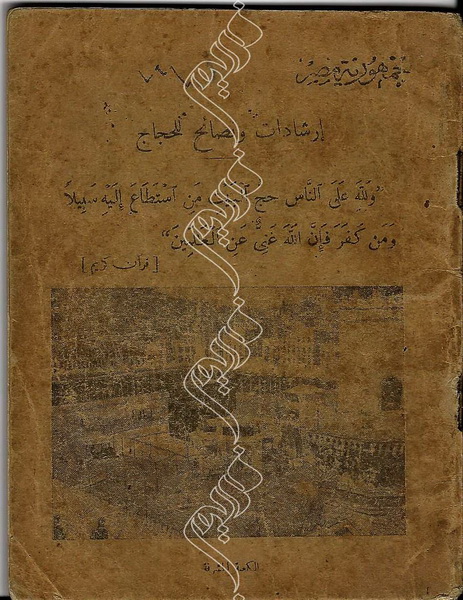 جمهورية مصر
إرشادات ونصائح للحجاج
"وَلِلَّهِ عَلَى ٱلنَّاسِ حِجُّ ٱلْبَيْتِ مَنِ ٱسْتَطَاعَ إِلَيْهِ سَبِيلًا
وَمَن كَفَرَ فَإِنَّ ٱللَّهَ غَنِىٌّ عَنِ ٱلْعَٰلَمِينَ"
[قرآن كريم]
الكعبة المشرفة